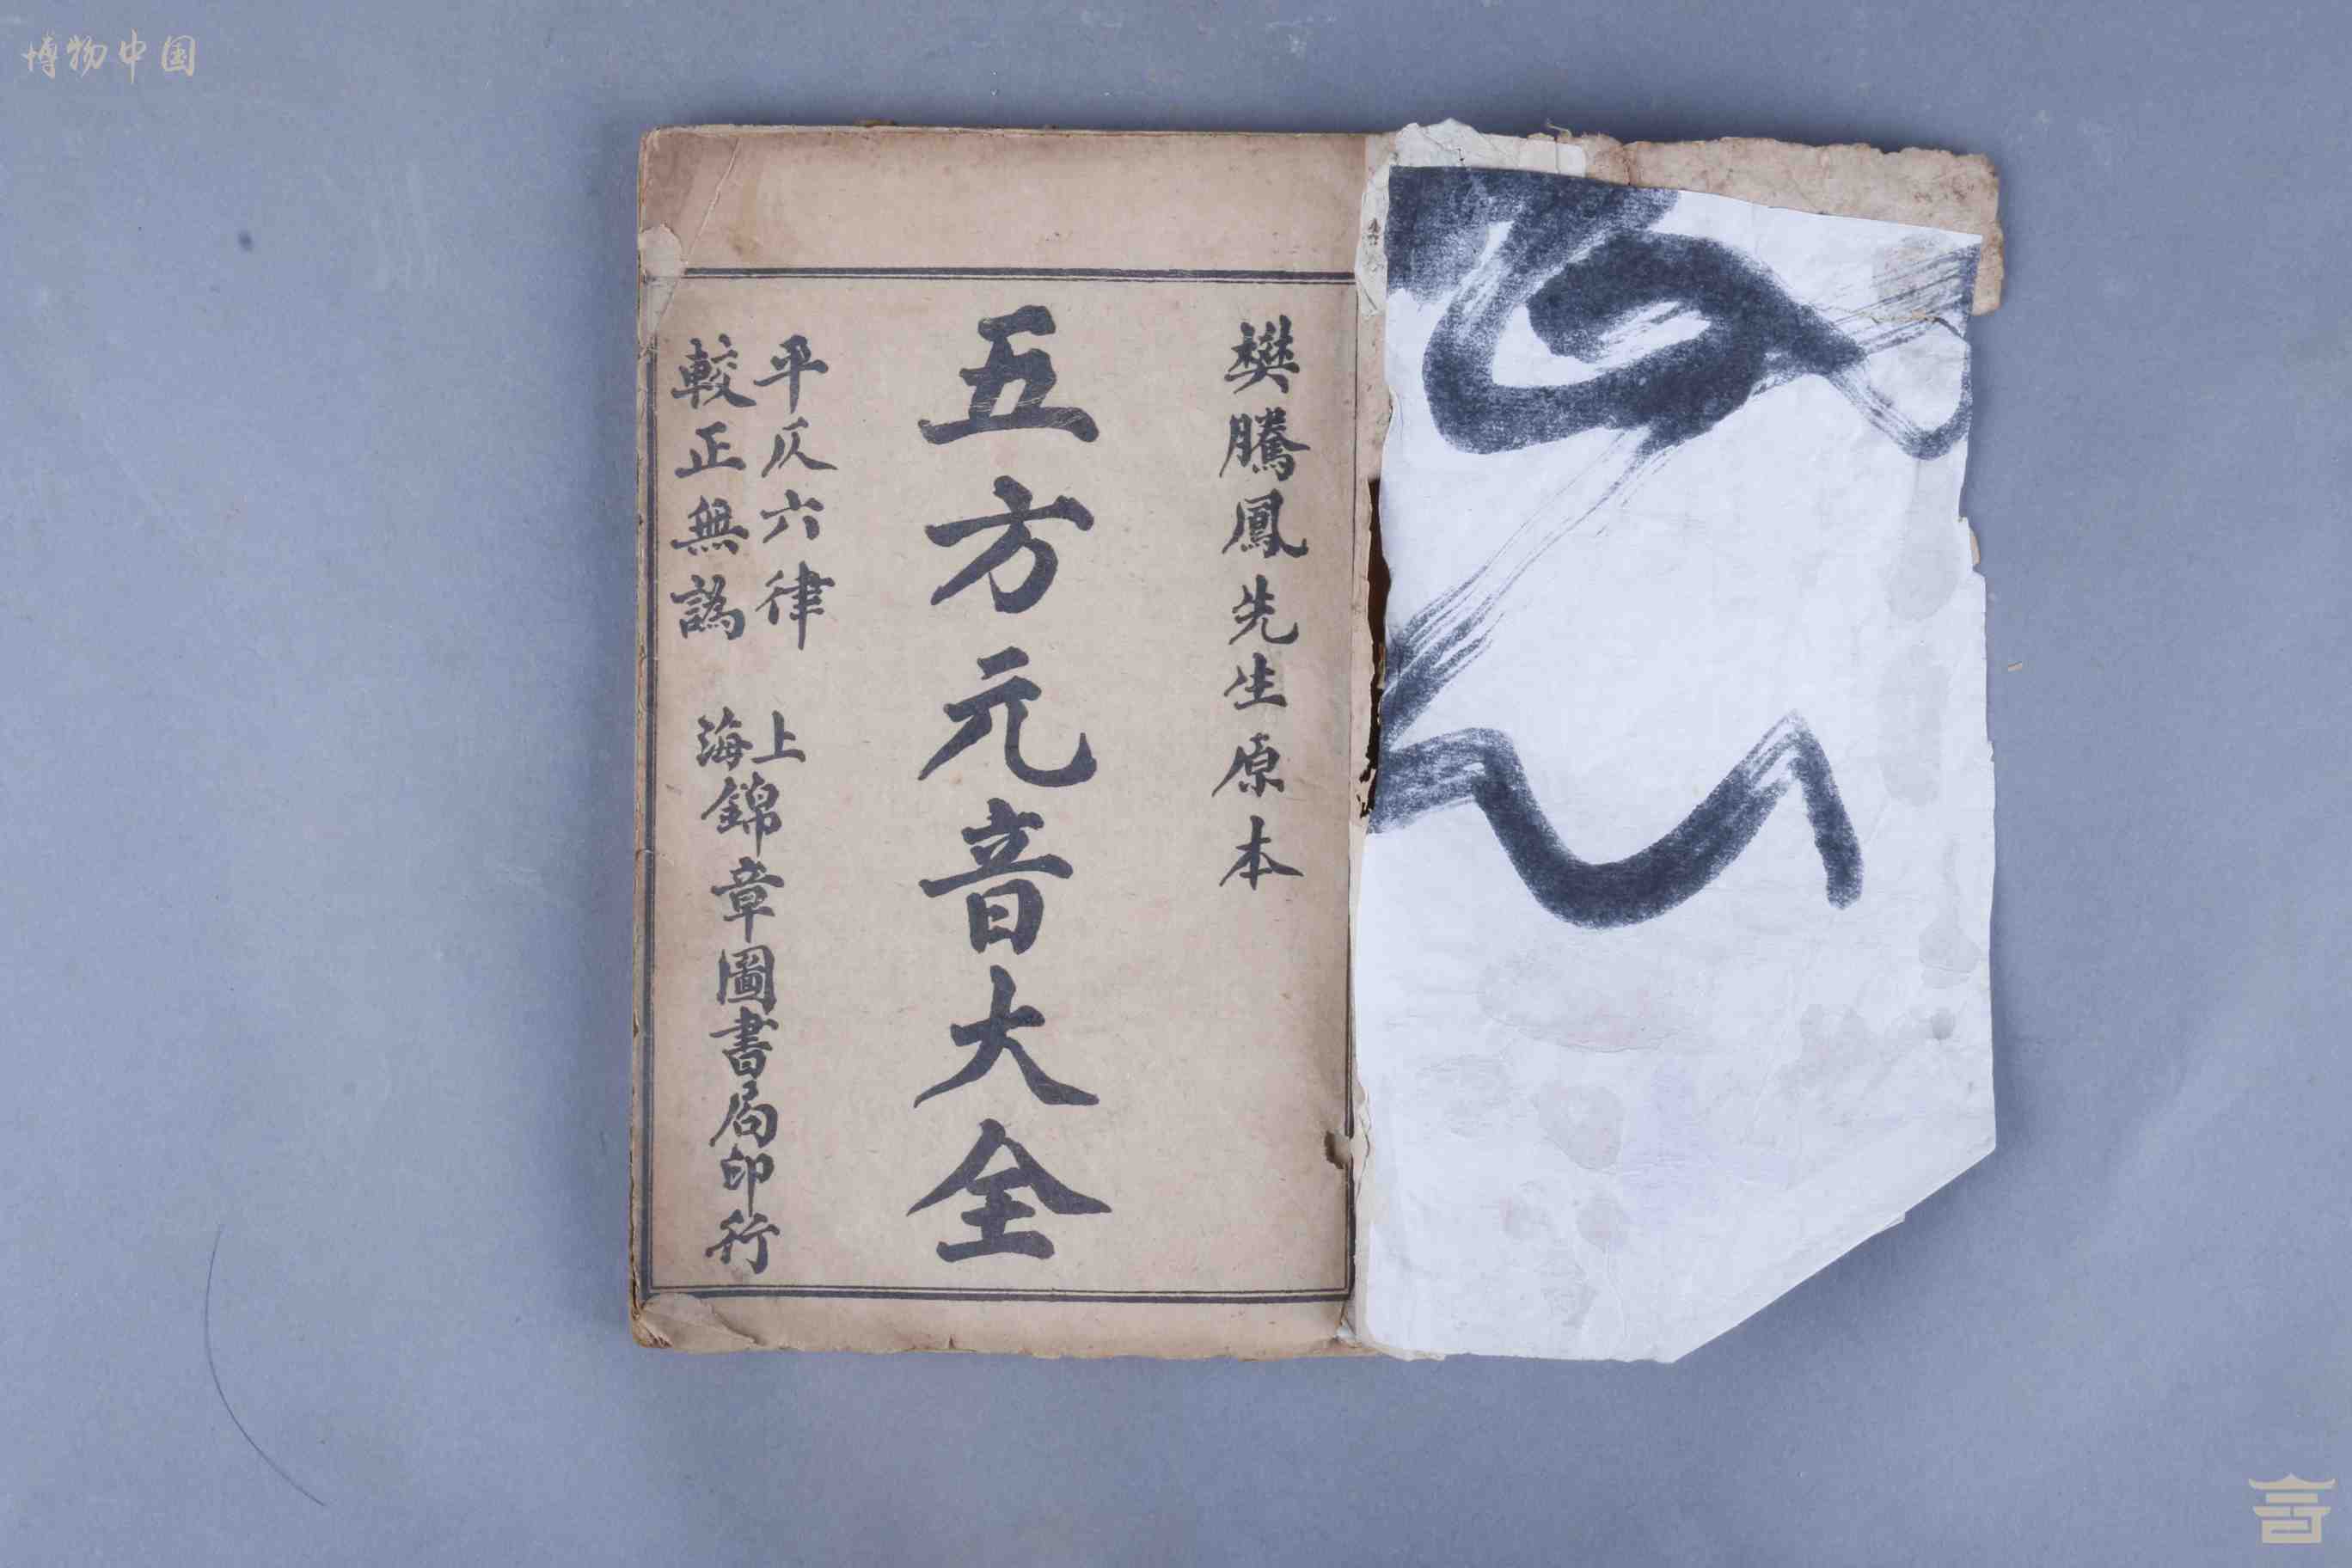 博物中国
樊騰鳳先生原本
五方元音大全
平仄六律
較正無譌
上海錦章圖書局印行